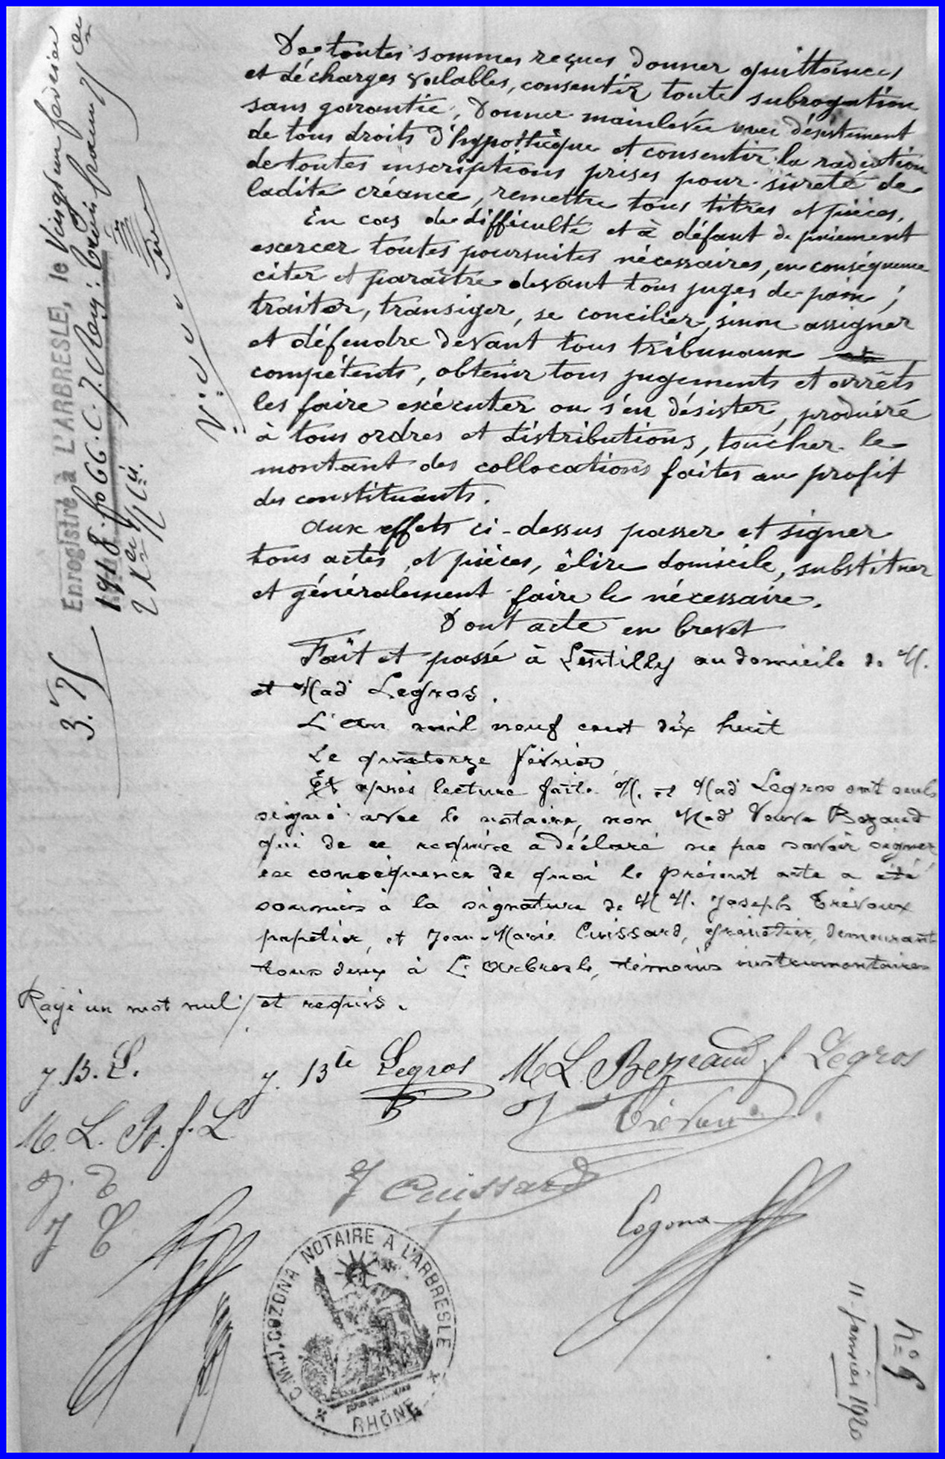 De toutes sommes reçues donner quittances
et décharges valables, consentir toute subrogation
sans garantie, Donner mainlevée avec désistement
de tous droits d'hypothèque et consentir la radiation
de toutes inscriptions prises pour sûreté de
ladite créance, remettre tous titres et pièces.
En cas de difficulté et à défaut de paiement
exercer toutes poursuites nécessaires, en conséquence
citer et paraître devant tous juges de paix ;
traiter, transiger, se concilier, sinon assigner
et défendre devant tous tribunaux
compétents, obtenir tous jugements et arrêts
les faire exécuter ou s'en désister, produire
à tous ordres et distributions, toucher le
montant des collocations faites au profit
des constituants.
Aux effets ci-dessus passer et signer
tous actes et pièces, élire domicile, substituer
et généralement faire le nécessaire.
Dont acte en brevet
Fait et passé à Lentilly au domicile de M.
et Mad Legros.
L'an mil neuf cent dix huit
Le quatorze février
Et après lecture faite M. et Mad Legros ont seuls
signé avec le notaire, non Mad Veuve
qui de ce requise a déclaré ne pas savoir signer
en conséquence de quoi le présent acte a été
soumis à la signature de M M. Joseph Trévoux
papetier, et Jean-Marie Cuissard, grainetier, demeurant
tous deux à L'Arbresle, témoins instrumentaires
et requis.
Rayé un mot nul
J. B. L.
J. Bte Legros
M L Bezeaud f Legros
M. L. B. f. L
J. T
J Trévoux
J C
J Cuissard
Cozona
C.M.J. COZONA NOTAIRE À L'ARBRESLE
RHÔNE
Enregistré à L'ARBRESLE, le Vingt un février
1918 fo 66 C. 7 Reçu : trois francs 75 ces
3.75
No 9
11 janvier 1920